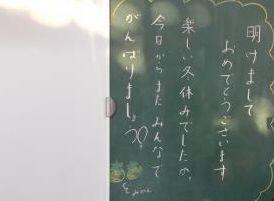 明けまして
おめでとうございます
楽しい冬休みでしたの。
今日からまたみんなで
がんばりましょう